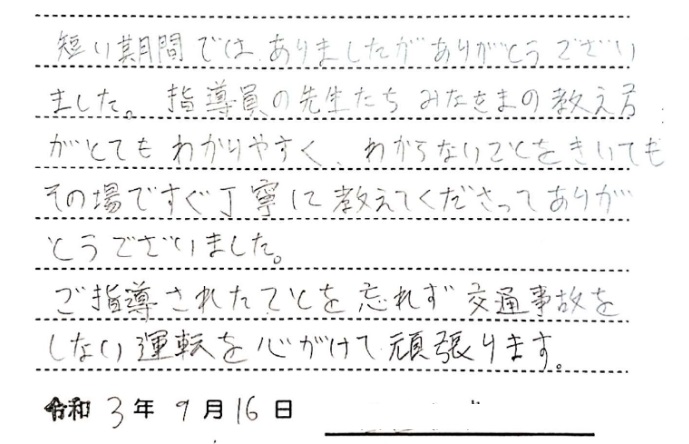 短い期間ではありましたがありがとうござい
ました。指導員の先生たちみなさまの教え方
がとてもわかりやすく、わからないことをきいても
その場ですぐ丁寧に教えてくださってありが
とうございました。
ご指導されたことを忘れず交通事故を
しない運転を心がけて頑張ります。
令和3年9月16日